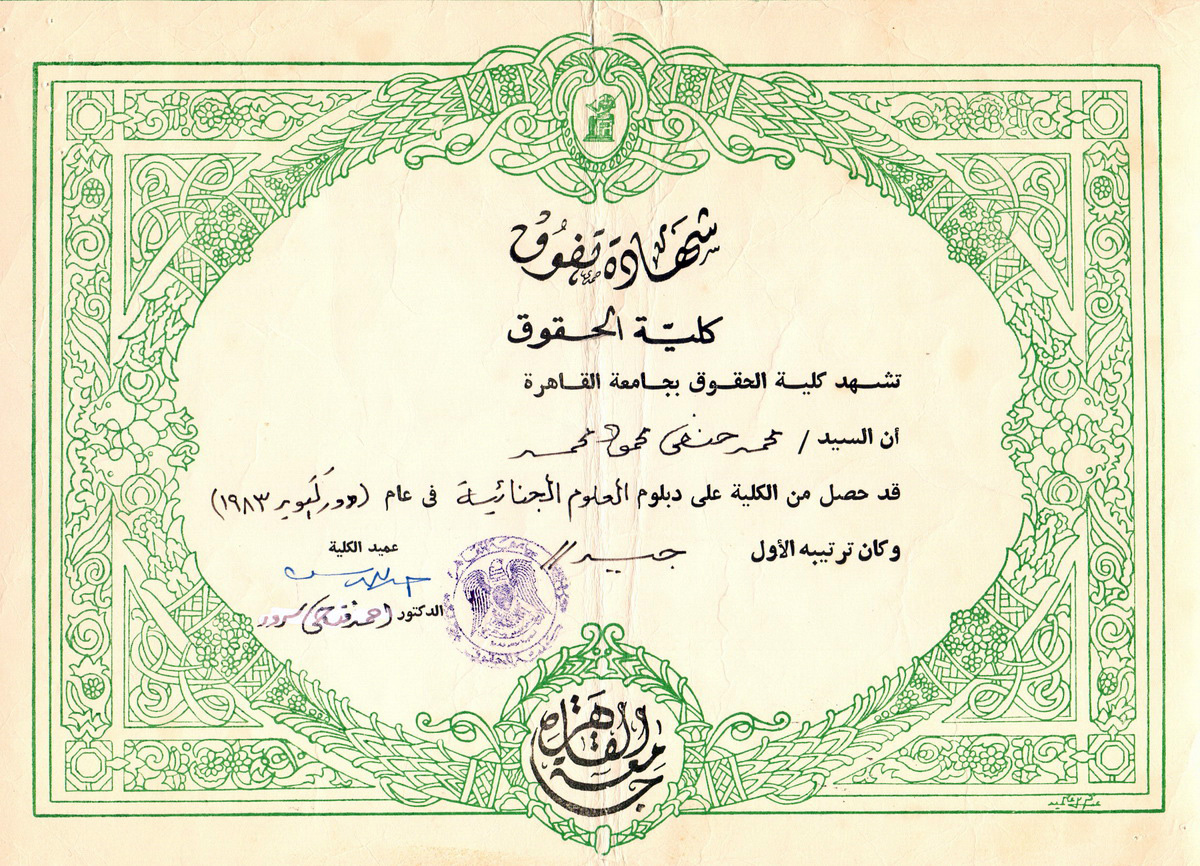 شهادة تفوق
كلية الحقوق
تشهد كلية الحقوق بجامعة القاهرة
أن السيد / محمد حنفى محمود محمد
قد حصل من الكلية على دبلوم العلوم الجنائية فى عام (دور أكتوبر ١٩٨٣)
وكان ترتيبه الأول جيد //
عميد الكلية
الدكتور / احمد فتحى سرور
جامعة القاهرة